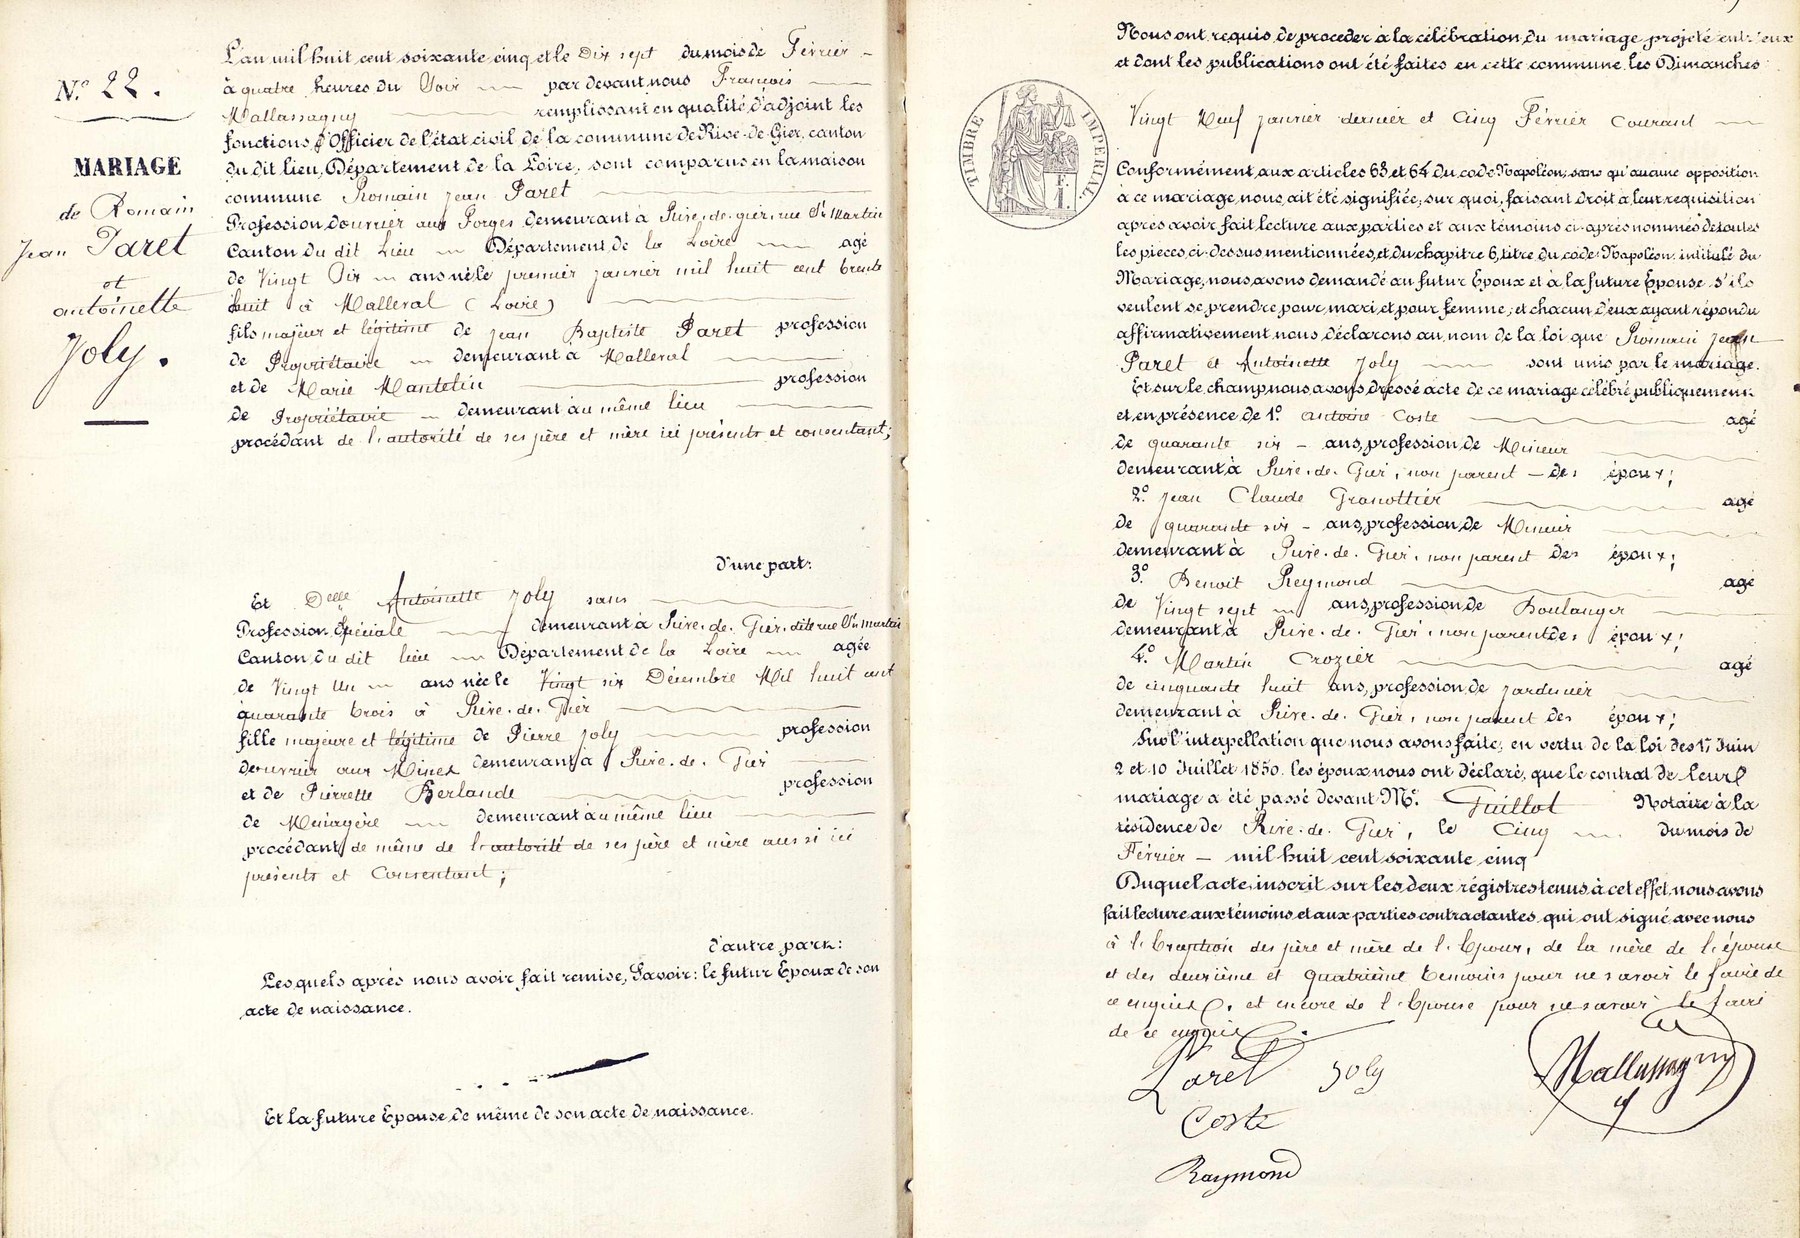 N.° 22.
MARIAGE
de Romain
Jean Paret
et
antoinette
Joly.
L'an mil huit cent soixante cinq et le Dix sept du mois de Février
à quatre heures du Soir par devant nous François
Mallassagny remplissant en qualité d'adjoint les
fonctions d'Officier de l'état civil de la commune de Rive-de-Gier, canton
du dit lieu, Département de la Loire, sont comparus en la maison
commune Romain Jean Paret
Profession d'ouvrier aux Forges demeurant à Rive-de-gier, rue St Martin
Canton du dit Lieu Département de la Loire agé
de Vingt Six ans né le premier janvier mil huit cent trente
huit à Malleval (Loire)
fils majeur et légitime de Jean Baptiste Paret profession
de Propriétaire demeurant à Malleval
et de Marie Mantelin profession
de Propriétaire demeurant au même lieu
procédant de l'autorité de ses père et mère ici présents et consentant;
d'une part:
Et Delle Antoinette Joly sans
Profession Spéciale demeurant à Rive-de-Gier, dite rue St Martin
Canton du dit lieu Département de la Loire agée
de Vingt Un ans née le Vingt six Décembre Mil huit cent
quarante trois à Rive-de-Gier
fille majeure et légitime de Pierre Joly profession
d'ouvrier aux Mines demeurant à Rive-de-Gier
et de Pierrette Berlande profession
de Ménagère demeurant au même lieu
procédant de même de l'autorité de ses père et mère aussi ici
présents et Consentant;
d'autre part:
Lesquels après nous avoir fait remise, Savoir: le futur Epoux de son
acte de naissance.
Et la future Epouse de même de son acte de naissance.
Nous ont requis de procéder à la célébration du mariage projeté entr'eux
et dont les publications ont été faites en cette commune les Dimanches
TIMBRE IMPERIAL
Vingt Neuf janvier dernier et Cinq Février Courant
Conformément aux articles 63 et 64 du code Napoléon, sans qu'aucune opposition
à ce mariage nous ait été signifiée; sur quoi, faisant droit à leur requisition
après avoir fait lecture aux parties et aux témoins ci-après nommés de toutes
les pièces ci-dessus mentionnées, et du chapitre 6, titre du code Napoléon intitulé du
Mariage, nous avons demandé au futur Epoux et à la future Epouse s'ils
veulent se prendre pour mari et pour femme; et chacun d'eux ayant répondu
affirmativement nous déclarons au nom de la loi que Romain Jean
Paret et Antoinette Joly sont unis par le mariage.
Et sur le champ nous avons dressé acte de ce mariage célébré publiquement
et en présence de 1° antoine Coste agé
de quarante six ans, profession de Mineur
demeurant à Rive-de-Gier, non parent des époux;
2° Jean Claude Granottier agé
de quarante six ans, profession de Mineur
demeurant à Rive-de-Gier, non parent des époux;
3° Benoit Reymond agé
de Vingt sept ans, profession de Boulanger
demeurant à Rive-de-Gier, non parent des époux;
4° Martin Crozier agé
de cinquante huit ans, profession de jardinier
demeurant à Rive-de-Gier, non parent des époux;
Sur l'interpellation que nous avons faite, en vertu de la loi des 17 Juin
2 et 10 Juillet 1850. les époux nous ont déclaré, que le contrat de leur
mariage a été passé devant M.e Guillot Notaire à la
résidence de Rive-de-Gier, le Cinq du mois de
Février mil huit cent soixante cinq
Duquel acte inscrit sur les deux régistres tenus à cet effet, nous avons
fait lecture aux témoins et aux parties contractantes, qui ont signé avec nous
à l'exception des père et mère de l'époux, de la mère de l'épouse
et des deuxième et quatrième témoins pour ne savoir le faire de
ce enquis, et encore de l'épouse pour ne savoir le faire
de ce enquise.
Paret Joly
Mallassagny
Coste
Raymond